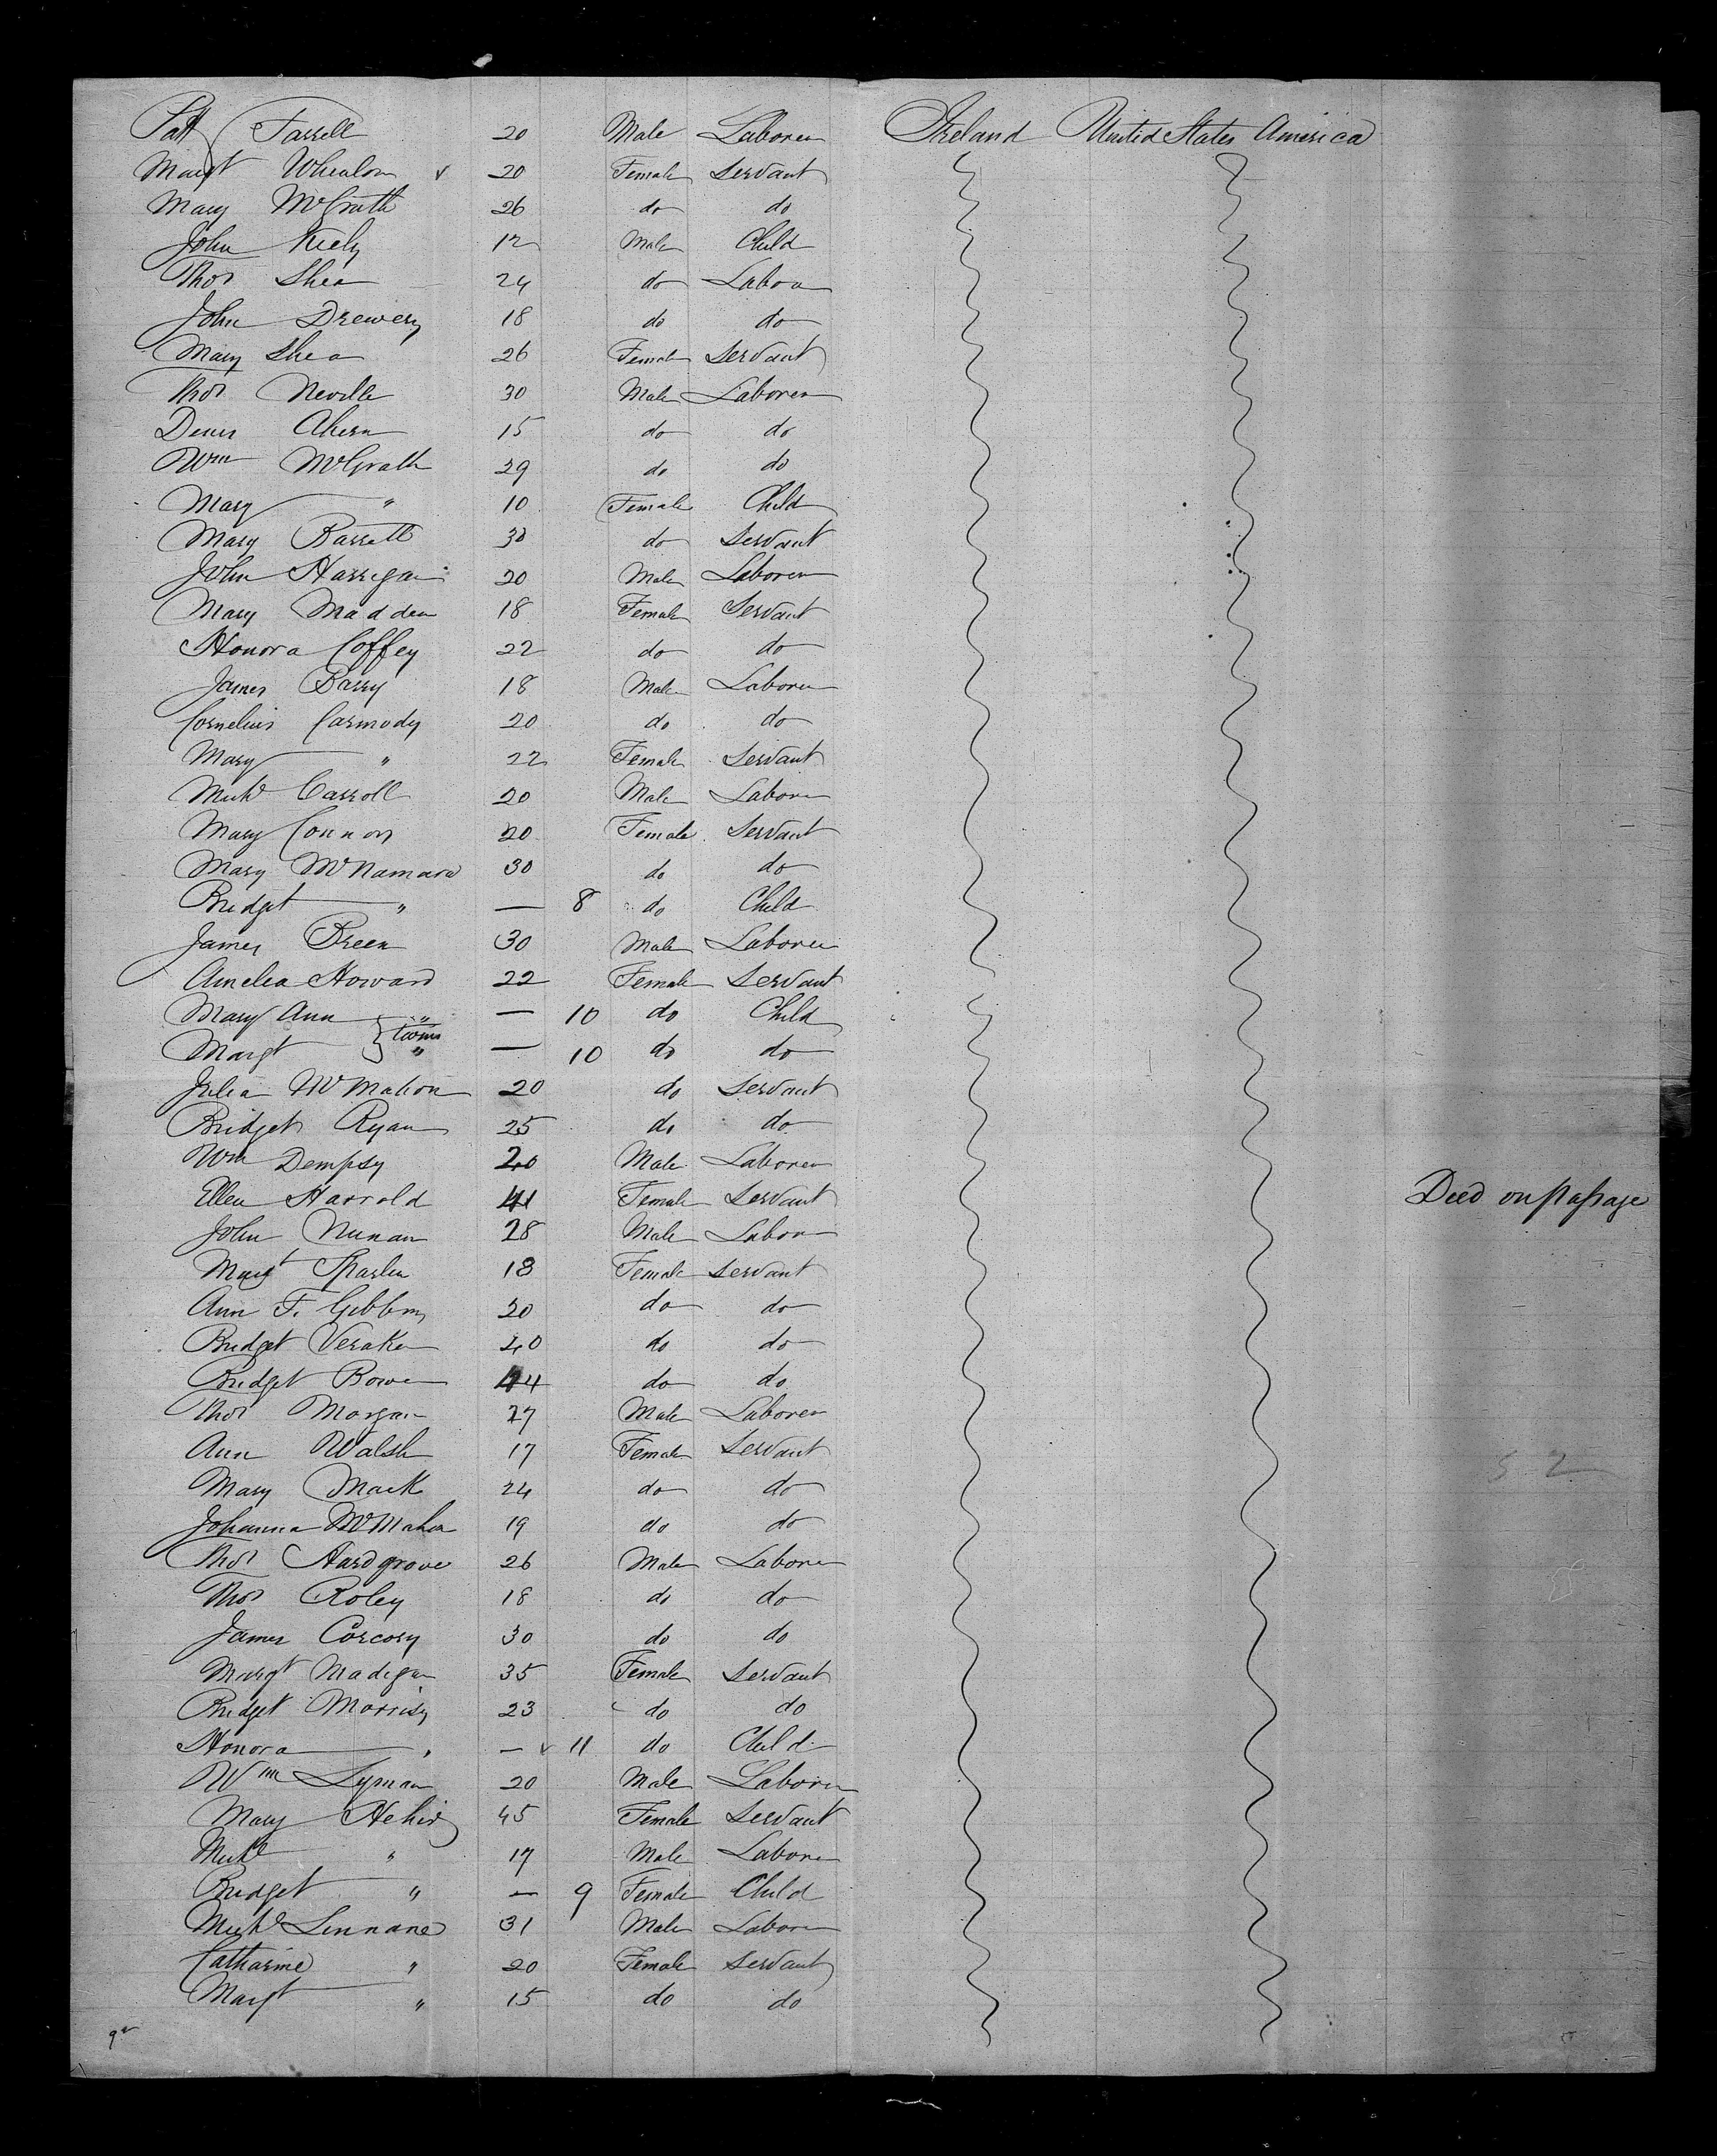 Patt Farrell 20 Male Laborer Ireland United States America
Margt Whealon v 20 Female Servant
Mary McGrath 26 do do
John Kiely 12 Male Child
Thos Shea 24 do Labor
John Drewery 18 do do
Mary Shea 26 Female Servant
Thos Neville 30 Male Laborer
Denis Ahern 15 do do
Wm McGrath 29 do do
Mary " 10 Female Child
Mary Barrett 30 do Servant
John Harrigan 20 Male Laborer
Mary Madden 18 Female Servant
Honora Coffey 22 do do
James Barry 18 Male Laborer
Cornelius Carmody 20 do do
Mary " 22 Female Servant
Michl Carroll 20 Male Labor
Mary Connors 20 Female Servant
Mary McNamara 30 do do
Bridget " — 8 do Child
James Breen 30 Male Laborer
Amelia Howard 22 Female Servant
Mary Ann " — 10 do Child
Margt } twins " — 10 do do
Julia McMahon 20 do Servant
Bridget Ryan 25 do do
Wm Dempsy 20 Male Laborer
Ellen Harrold 41 Female Servant Died on passage
John Nunan 28 Male Labor
Margt 18 Female Servant
Ann F. Gibbons 20 do do
Bridget 40 do do
Bridget Bowe 44 do do
Thos Morgan 27 Male Laborer
Ann Walsh 17 Female Servant
Mary Mack 24 do do
Johanna McMahon 19 do do
Thos Hardgrove 26 Male Laborer
Thos Roley 18 do do
James Corcory 30 do do
Margt Madigan 35 Female Servant
Bridget Morrisy 23 do do
Honora " — v 11 do Child
Wm Lyman 20 Male Laborer
Mary Hehir 45 Female Servant
Michl " 17 Male Labor
Bridget " — 9 Female Child
Michl Linnane 31 Male Labor
Catharine " 20 Female Servant
Margt " 15 do do